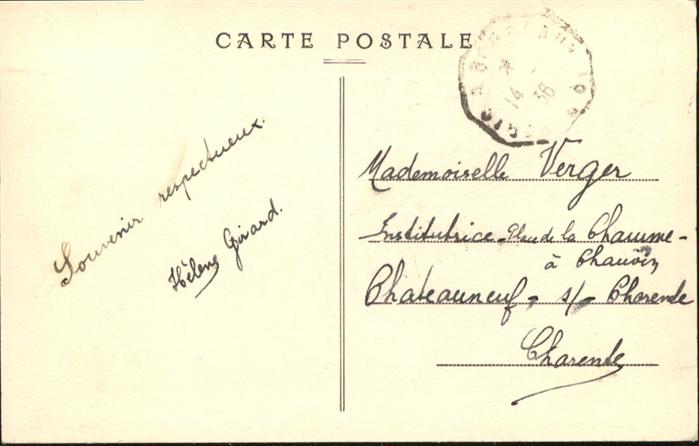 CARTE POSTALE
14
36
Souvenir respectueux.
Hélène Girard.
Mademoiselle Verger
Institutrice - de la Chaume -
à Chauvin
Chateauneuf - s/- Charente
Charente